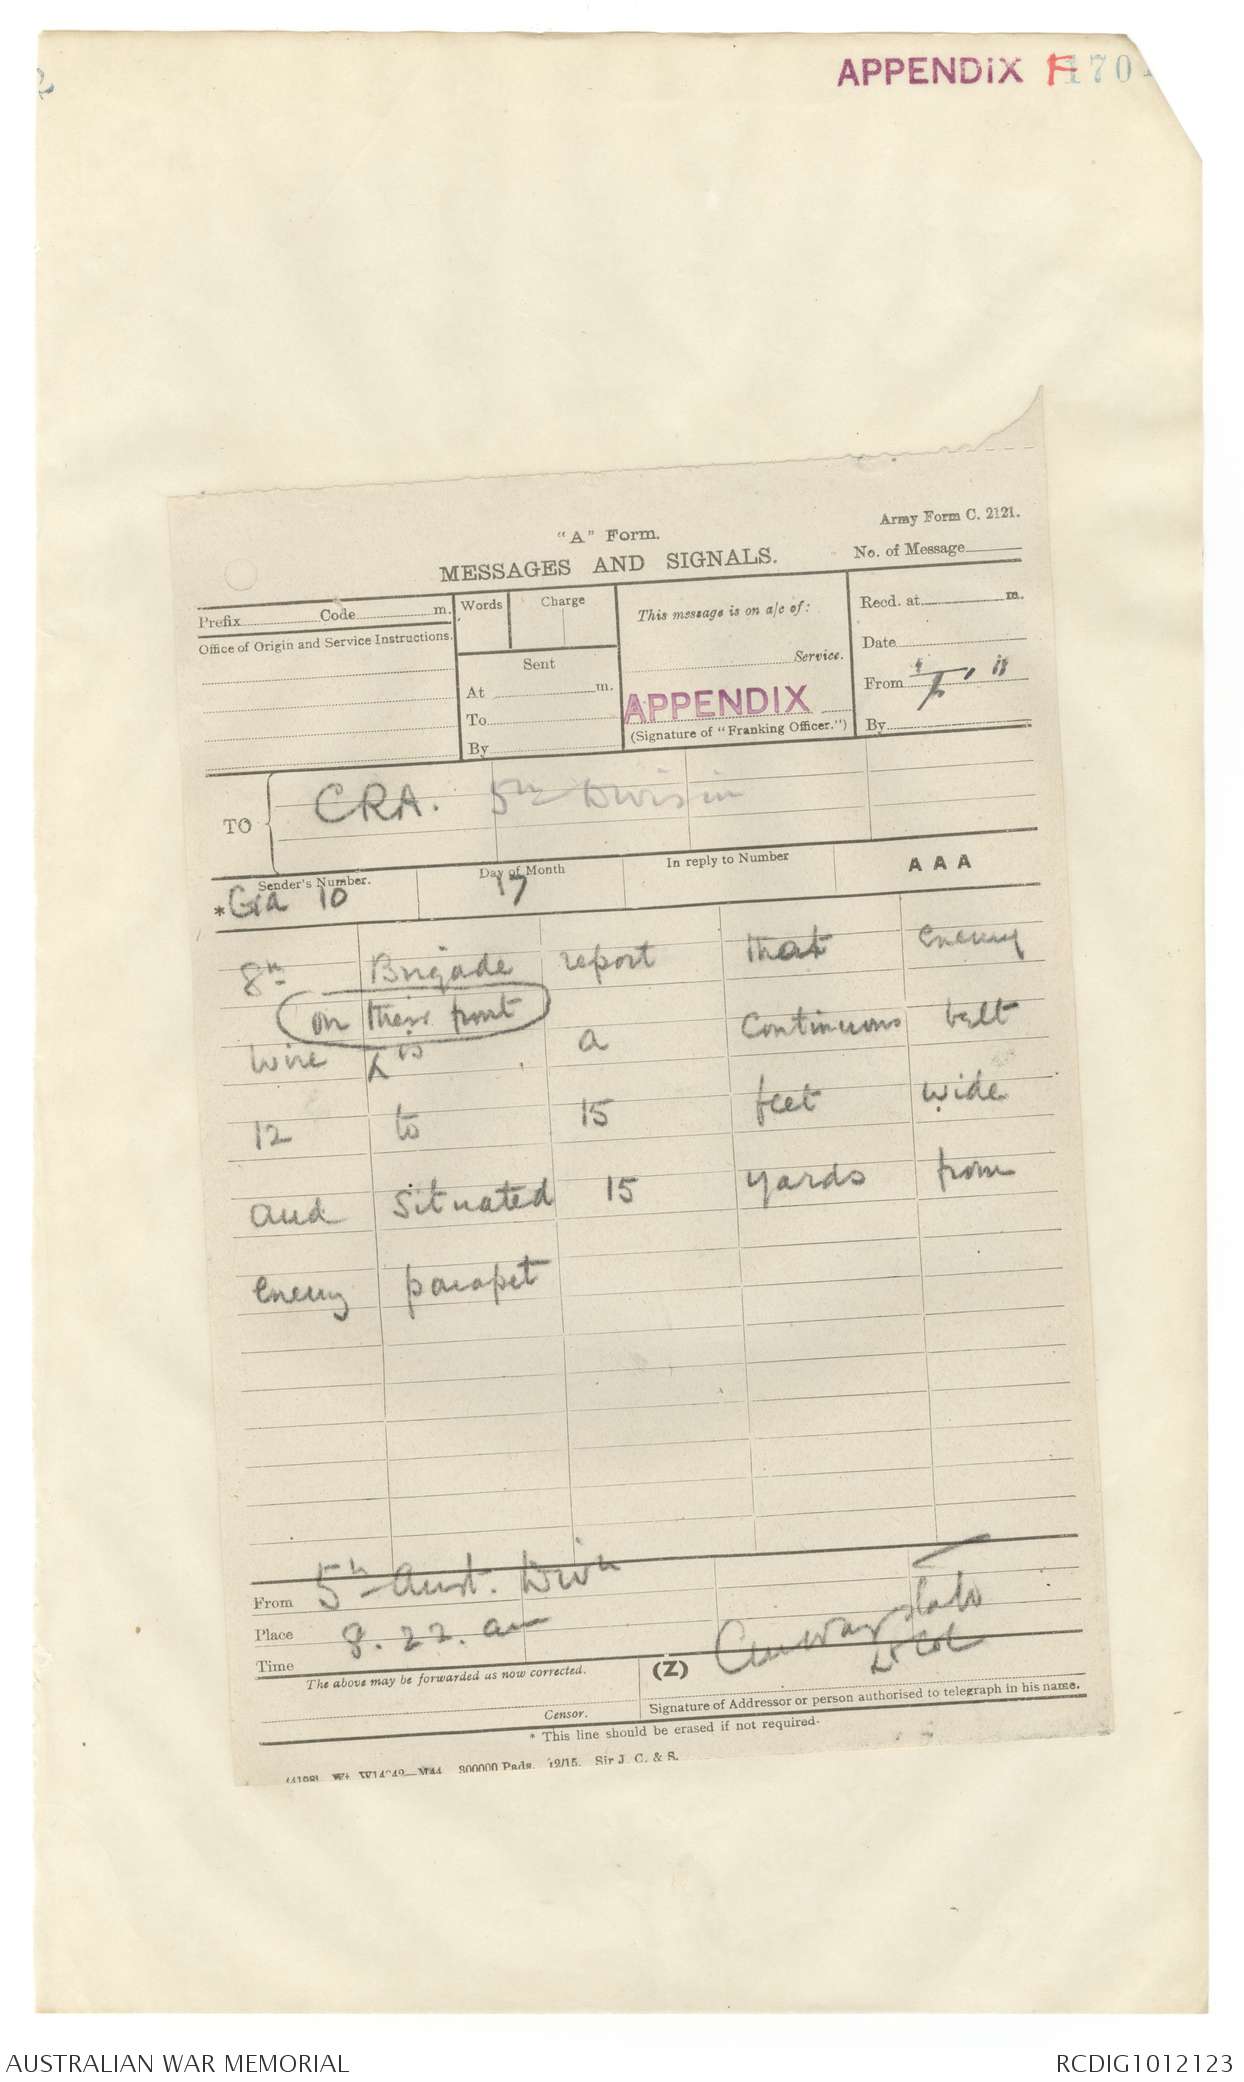 APPENDIX F
170
"A" Form.
Army Form C. 2121.
MESSAGES AND SIGNALS.
No. of Message
Prefix Code m.
Words Charge
This message is on a/c of:
Recd. at m.
Office of Origin and Service Instructions.
Sent
Service.
Date
At m.
APPENDIX
From
To
(Signature of "Franking Officer.")
By
By
TO
CRA. 5th Division
Sender's Number.
Day of Month
In reply to Number
AAA
* Ga 10
17
8th Brigade report that enemy
on their front
wire is a continuous belt
12 to 15 feet wide
and situated 15 yards from
enemy parapet
From 5th Aust. Divn
Place
8.22. am
Time
The above may be forwarded as now corrected.
(Z)
Lt Col
Censor.
Signature of Addressor or person authorised to telegraph in his name.
* This line should be erased if not required.
300000 Pads. 12/15. Sir J. C. & S.
AUSTRALIAN WAR MEMORIAL
RCDIG1012123